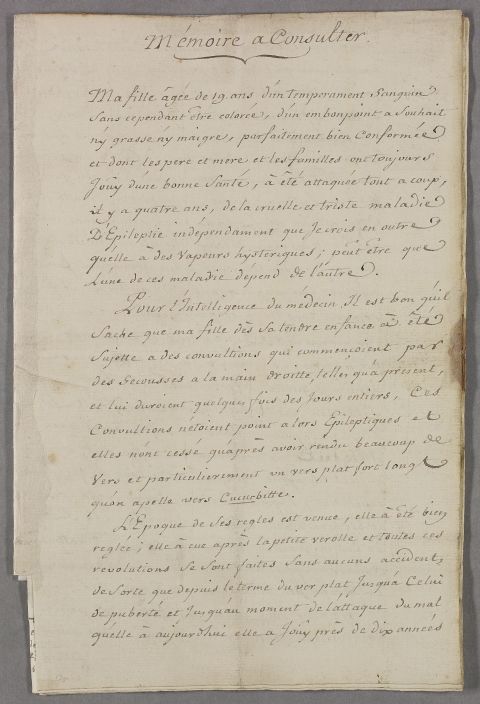 Mémoire a Consulter.
Ma fille âgée de 19. ans d'un temperament Sanguin
Sans cependant être colorée, d'un embonpoint a Souhait
ny grasse ny maigre, parfaitement bien Conformée
et dont les pere et mere et les familles ont toujours
Joüy d'une bonne Santé, à été attaquée tout a coup,
il y a quatre ans, de la cruelle et triste maladie
D'Epileptie indépendament que Je crois en outre
quelle à des Vapeurs hysteriques; peut être que
L'une de ces maladie dépend de l'autre.
Pour l'Intelligence du médecin, Il est bon qu'il
Sache que ma fille dès Sa tendre enfance à été
Sujette a des convultions qui commencoient par
des Secousses a la main droitte, telles qu'a présent,
et lui duroient quelques fois des Jours entiers, Ces
Convultions nétoient point alors Epileptiques et
elles n'ont cessé quaprès avoir rendu beaucoup de
Vers et particulierement un vers plat fort long
qu'on apelle vers Cucurbitte.
L'Epoque de Ses regles est venue, elle à été bien
reglée; elle à eue après la petite verolle et toutes ces
revolutions Se Sont faites Sans aucuns accident,
de Sorte que depuis le terme du ver plat Jusqu'a Celui
de puberté et Jusqu'au moment de l'attaque du mal
qu'elle à aujourd'hui elle a Joüy près de dix années